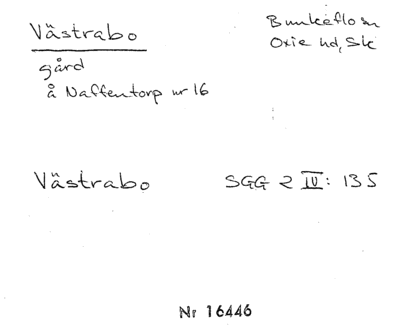 Västrabo
Bunkeflo sn
Oxie hd, Sk
gård
å Naffentorp nr 16
Västrabo SGG 2 IV: 135
Nr 16446